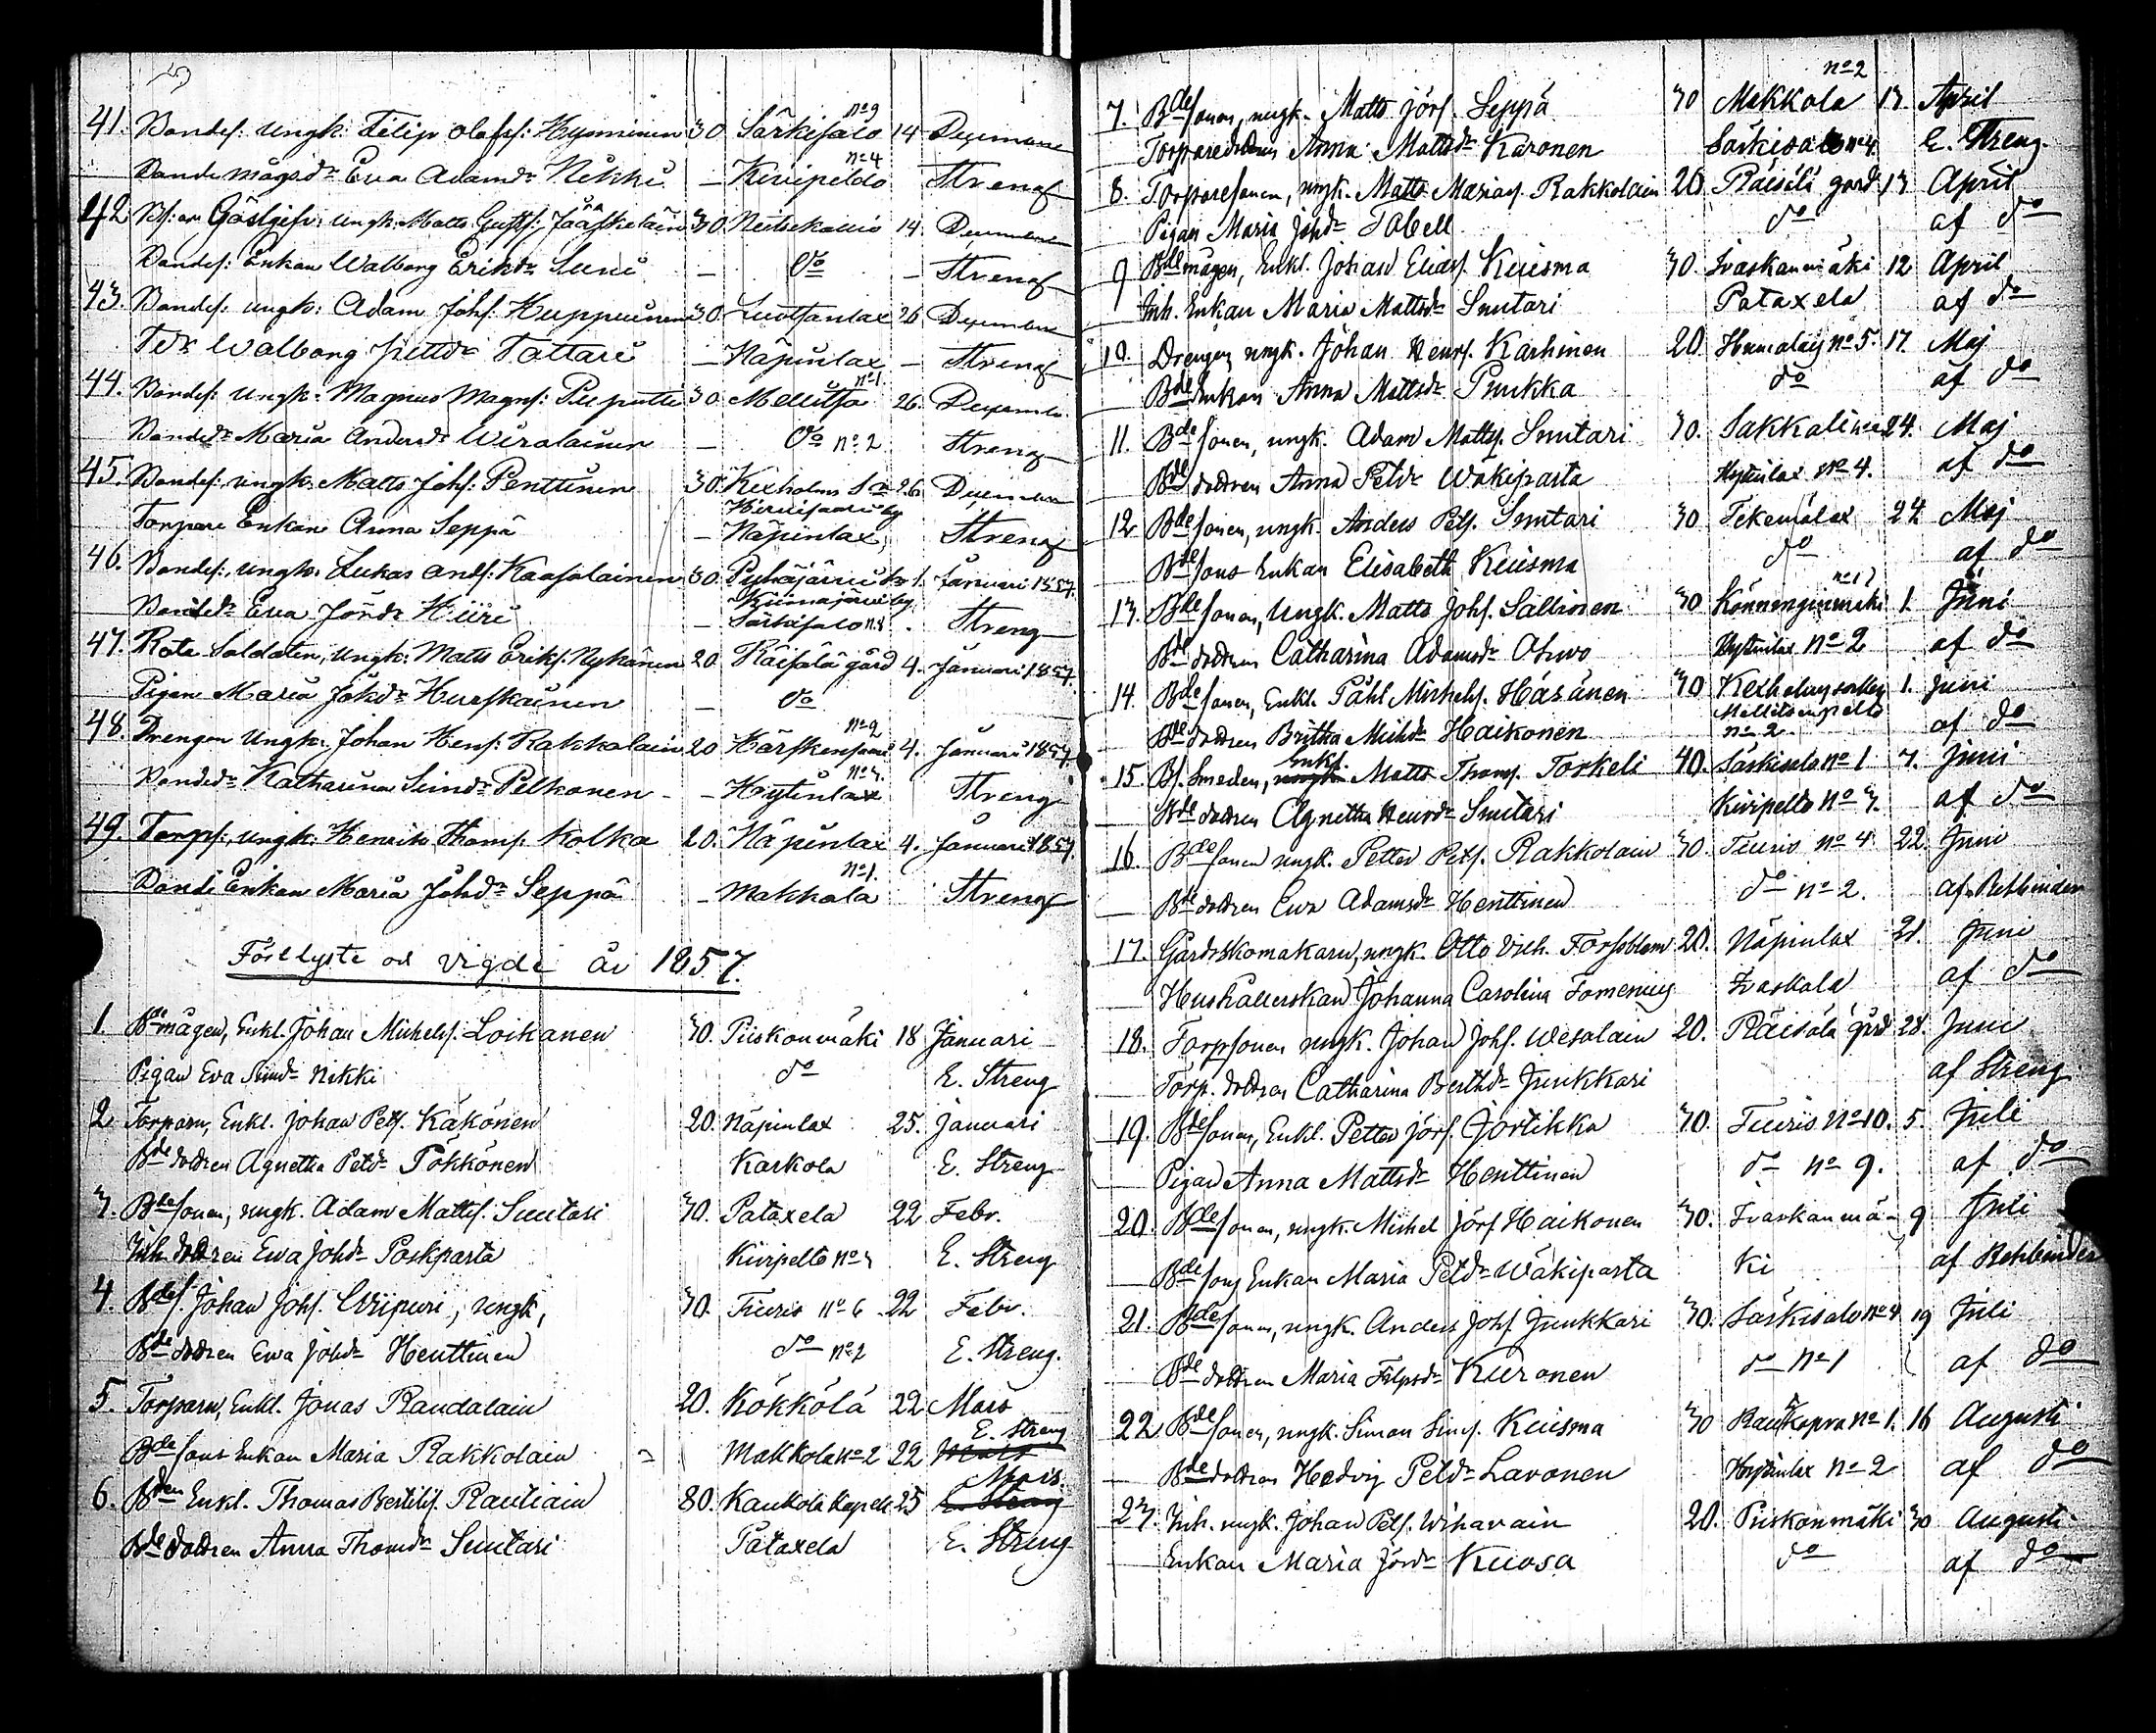 41. Bondes: ungk: Filip Olofss: Hyvninen 30. Särkisalo no 9 14 December
Bonde mågsdr Eva Adamdr Nikki – Kivipelto no 4 Streng
42 Gästgifv: ungk: Matts Gustfs: Jääskeläin 30. Neitsikallio 14. December
Bondes: Enkan Walborg Eriksdr Suni – Do – Streng
43. Bondes: ungk: Adam Johs: Huppuinen 30. 26 December
Walborg Pettdr Tattari – Näpinlax – Streng
44. Bondes: ungk: Magnus Magns: Puputti 30. Mellitsa no 1. 26. December
Bondedr Maria Andersdr Wiralainen – Do no 2. Streng
45. Bondes: ungk: Matts Johs: Penttinen 30. Kexholms Sn 26 December
by
Torpare Enkan Anna Seppä – Näpinlax, Streng
46. Bondes: ungk: Lukas Ands: Kaasalainen 30. Pyhäjärvi Sn 1. Januari 1857.
Kiimajärvi by
Bondedr Eva Jörsdr Hiiri – Särkisalo n.8. Streng
47. Rote Soldaten, ungk: Matts Eriks: Nykänen 20 Räisälä gård 4. Januari 1857.
Pigan Maria Johdr Hurskainen – Do
48. Drengen ungk: Johan Hens: Rakkolain 20 no 2 4. Januari 1857.
Bondedr Katharina Simdr Pelkonen – Hytinlax no 3. Streng
49. Torps: ungk: Henrik Thoms: Kolka 20. Näpinlax 4. Januari 1857.
Bonde Enkan Maria Johdr Seppä – Makkola no 1. Streng
Förelyste och vigde år 1857.
1. Bde mågen, Enkl. Johan Michels. Loikanen 30. Piiskonmäki 18 Januari
Pigan Eva Simdr Nikki do E. Streng
2 Torparn, Enkl. Johan Pets. Käkönen 20. Näpinlax 25. Januari
Bde dottren Agnetha Petdr Pökkönen Karkola E. Streng
3. Bde sonen, ungk. Adam Matts. Suutari 30. Pataxela 22 Febr.
Inh. dottren Ewa Johdr Poskparta Kivipelto No 3 E. Streng
4. Bdes. Johan Johs. Wiipuri, ungk, 30. Tiuris No 6 22 Febr.
Bde dottren Ewa Johdr Henttinen do No 2 E. Streng.
5. Torparn, Enkl. Jonas Raudalain 20. Kökkölä 22 Mars
Bde sons Enkan Maria Rakkolain Makkola No 2 22 E. Streng
6. Bden Enkl. Thomas Bertils. Rautiain 80. Kaukola Kapell 25 Mars.
Bde dottren Anna Thomdr Suutari Pataxela E. Streng
7. Bde sonen, ungk. Matts Jörs. Seppä 30 Makkola no 2 13 April
Torparedottren Anna Mattsdr Karonen Särkisalo no 4. E. Streng.
8. Torparesonen, ungk. Matts Mårtens. Rakkolain 20 Räisälä gård 13 April
Pigan Maria Johdr Tabell do af do
9 Bde mågen, Enkl. Johan Elias. Kuisma 30. Ivaskanmäki 12 April
Inh. Enkan Maria Mattsdr Suutari Pataxela af do
10. Drengen, ungk. Johan Henrs. Karhinen 20. Humalais no 5. 17. Maj
Bde Enkan Anna Mattsdr Puukka do af do
11. Bde sonen, ungk. Adam Matts. Suutari 30. Sakkali 24. Maj
Bde dottren Anna Petdr Wäkiparta Hytinlax No 4. af do
12 Bde sonen, ungk. Anders Pets. Suutari 30 Tekemälax 24 Maj
Bde sons Enkan Elisabeth Kuisma do af do
13. Bde sonen, ungk. Matts Johs. Sallinen 30 no 17 1. Juni
Bde dottren Catharina Adamsdr Ohwo Hytinlax No 2 af do
14. Bde sonen, Enkl. Påhl Michels. Häsänen 30 Kexholms socken 1. Juni
Mellitsenpelto
Bde dottren Britha Michdr Haikonen no 2. af do
15. Bf. Smeden, Enkl. Matts Thoms. Torkeli 40. Särkisalo No 1 7. Juni
Bde dottren Agnetha Henrdr Suutari Kivipelto No 3. af do
16. Bde sonen ungk. Petter Pets. Rakkolain 30. Tiuris No 4. 22. Juni
Bde dottren Ewa Adamsdr Henttinen do No 2. af Rehbinder
17. Gårdsskomakaren, ungk. Otto Vilh. Forsblom 20. Näpinlax 21. Juni
Hushållerskan Johanna Carolina Fomenius Ivaskala af do
18. Torpsonen ungk. Johan Johs. Wesalain 20. Räisälä gård 28. Juni
Torp. dottren Catharina Berthdr Junkkari af Streng
19. Bde sonen, Enkl. Petter Jörs. Jortikka 30. Tiuris No 10. 5. Juli
Pigan Anna Mattsdr Henttinen do No 9. af do
20. Bde sonen, ungk. Michel Jörs. Haikonen 30. Ivaskanmä- 9 Juli
Bde sons Enkan Maria Petdr Wäkiparta ki af Rehbinder
21. Bde sonen, ungk. Anders Johs. Junkkari 30. Särkisalo No 4 19 Juli
Bde dottren Maria Filpsdr Kuronen do No 1 af do
22 Bde sonen, ungk. Simon Sims. Kuisma 30 No 1. 16 Augusti
Bde dottren Hedvig Petdr Lavonen Hytinlax No 2 af do
23. Inh. ungk. Johan Pets. Wihavain 20. Piiskonmäki 30 Augusti.
Enkan Maria Jörsdr Kuosa do af do